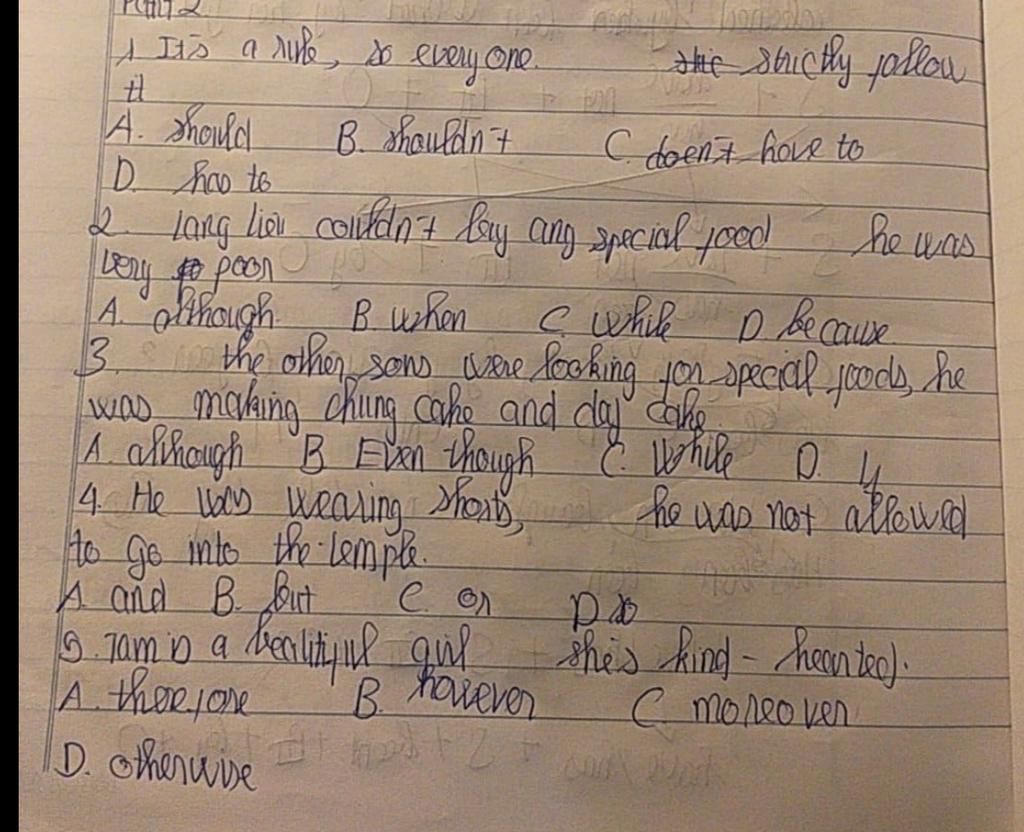 Part 2
1 It's a rule, so everyone strictly follow
it
A. should B. shouldn't C. doen't have to
D. has to
2. Lang Lieu couldn't buy any special food he was
very poor
A. although. B when C. while D. because
3. the other sons were looking for special foods, he
was making chung cake and day cake.
A. although B Even though C. While D. If
4. He was wearing shorts, he was not allowed
to go into the temple.
A. and B. but C. or D so
5. Tam is a beautiful girl she's kind - hearted.
A. therefore B. however C. moreover
D. otherwise